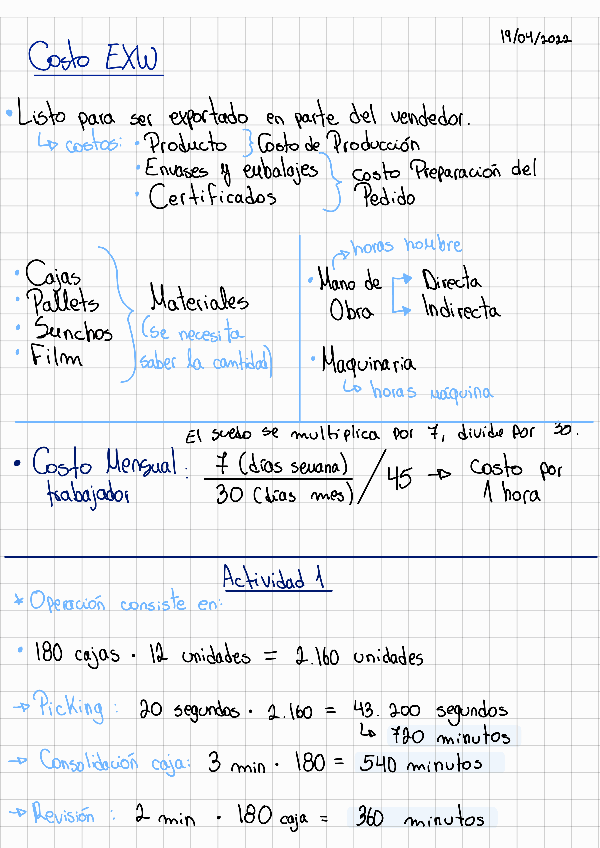 19/04/2022
Costo EXW
• Listo para ser exportado en parte del vendedor.
↳ costos: • Producto } Costo de Producción
• Envases y embalajes } costo Preparación del
• Certificados Pedido
horas hombre
• Cajas
• Pallets
• Sunchos
• Film
Materiales
(se necesita
saber la cantidad)
• Mano de Obra → Directa
→ Indirecta
• Maquinaria
↳ horas máquina
El sueldo se multiplica por 7, divide por 30.
• Costo Mensual trabajador : 7 (días semana) / 30 (días mes) / 45 → Costo por 1 hora
Actividad 1
* Operación consiste en:
• 180 cajas · 12 unidades = 2.160 unidades
→ Picking : 20 segundos · 2.160 = 43.200 segundos
↳ 720 minutos
→ Consolidación caja: 3 min · 180 = 540 minutos
→ Revisión : 2 min · 180 caja = 360 minutos